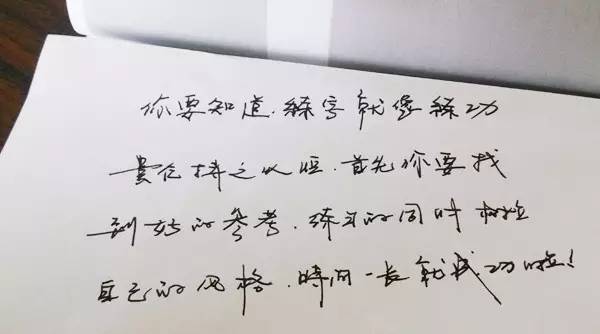 你要知道,練字就像練功
貴在持之以恒.首先你要找
到好的参考,練习的同时树立
自己的风格,時间一長就成功啦!